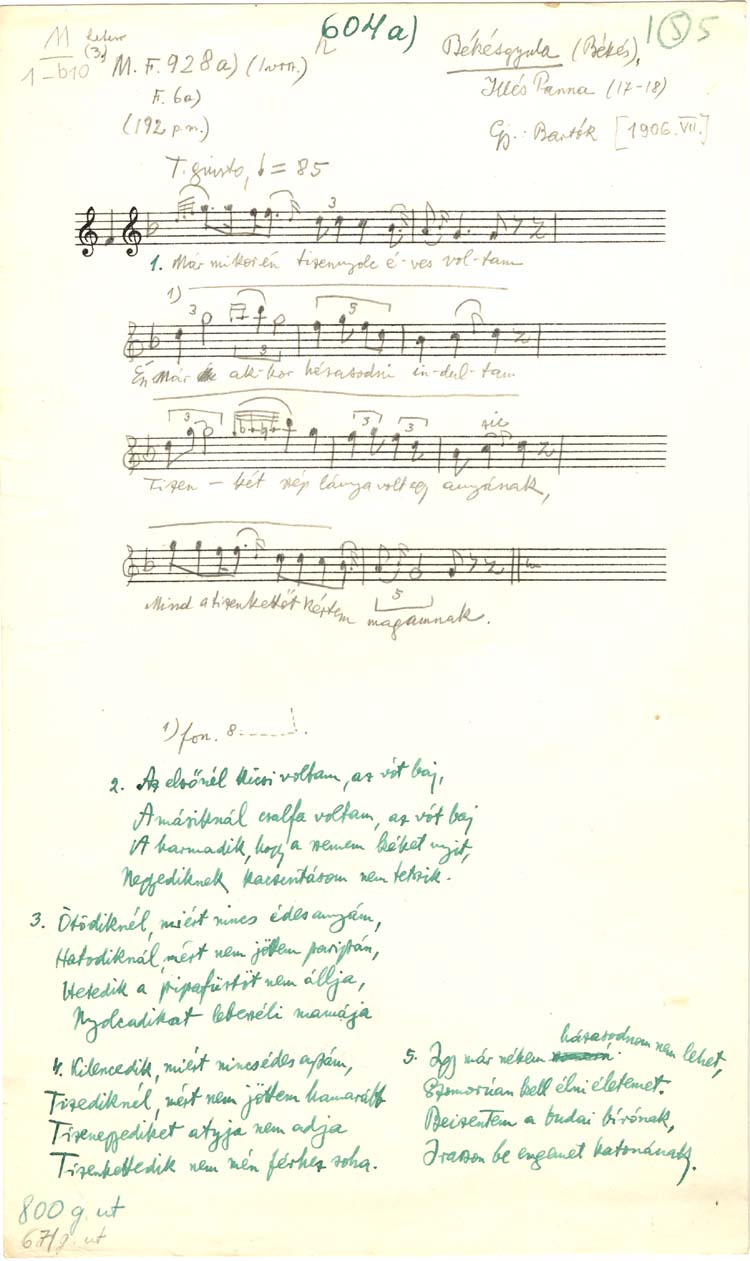 604a)
M. F. 928a)
F. 6a)
(192 p.m.)
Békésgyula (Békés),
Illés Panna (17-18)
Gy.: Bartók [1906. VII.]
T. giusto, = 85
1. Már mikor én tizennyolc é-ves vol-tam
1)
Én már ak-kor házasodni in-dul-tam
sic
Tizen - két szép lánya volt egy anyának,
Mind a tizenkettőt kértem magamnak.
1) fon. 8
2. Az elsőnél kicsi voltam, az vót baj,
A másiknál csalfa voltam, az vót baj
A harmadik, hogy a szemem kéket nyit,
Negyediknek kacsintásom nem tetszik.
3. Ötödiknél, miért nincs édesanyám,
Hatodiknál, mért nem jöttem paripán,
Hetedik a pipafüstöt nem állja,
Nyolcadikat lebeszéli mamája
4. Kilencedik, miért nincs édes apám,
Tizediknél, mért nem jöttem hamarább
Tizenegyediket atyja nem adja
Tizenkettedik nem mén férhez soha.
5. Így már nékem házasodnom nem lehet,
Szomorúan kell élni életemet.
Beizentem a budai bírónak,
Irasson be engemet katonának.
800 g. ut
671 g. ut